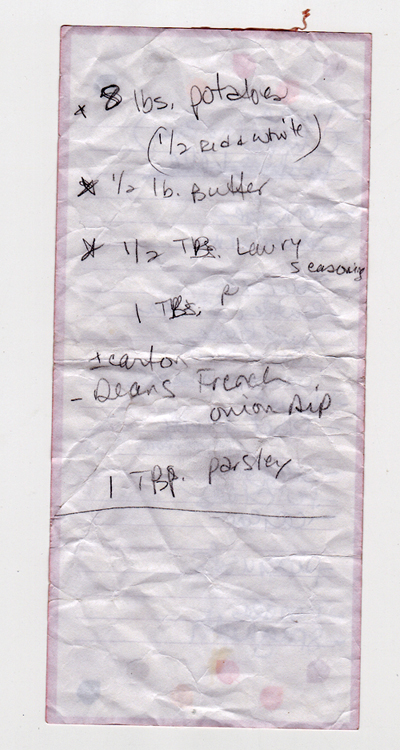 8 lbs. potatoes
(1/2 Red & white)
1/2 lb. Butter
1/2 TBs. Lawry
seasoning
1 TBs. P
1 carton
- Deans French
onion Dip
1 TBP. parsley